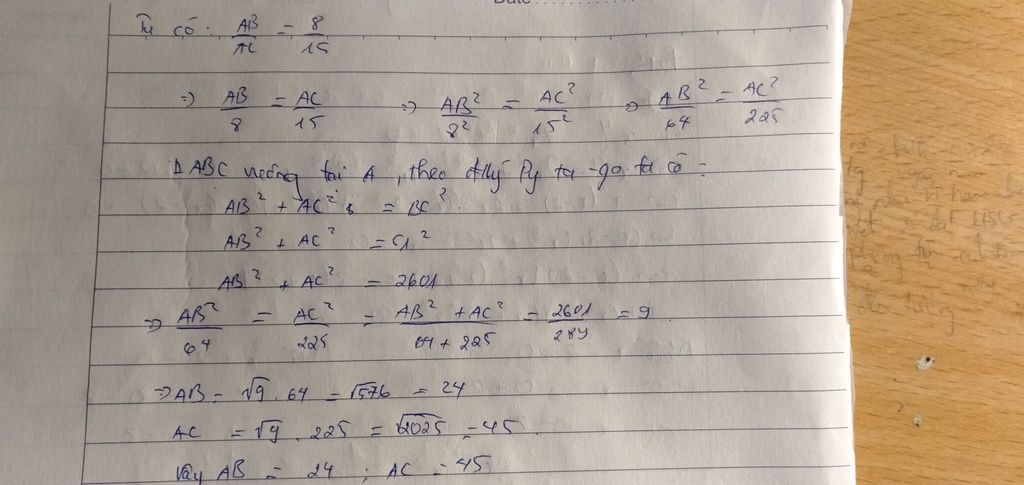 Date
Ta có: AB/AC = 8/15
=> AB/8 = AC/15 => AB²/8² = AC²/15² => AB²/64 = AC²/225
Δ ABC vuông tại A, theo đlý Py ta-go ta có:
AB² + AC² = BC²
AB² + AC² = 51²
AB² + AC² = 2601
=> AB²/64 = AC²/225 = AB² + AC²/64 + 225 = 2601/289 = 9
=> AB = √9 . 64 = √576 = 24
AC = √9 . 225 = √2025 = 45
Vậy AB = 24 ; AC = 45